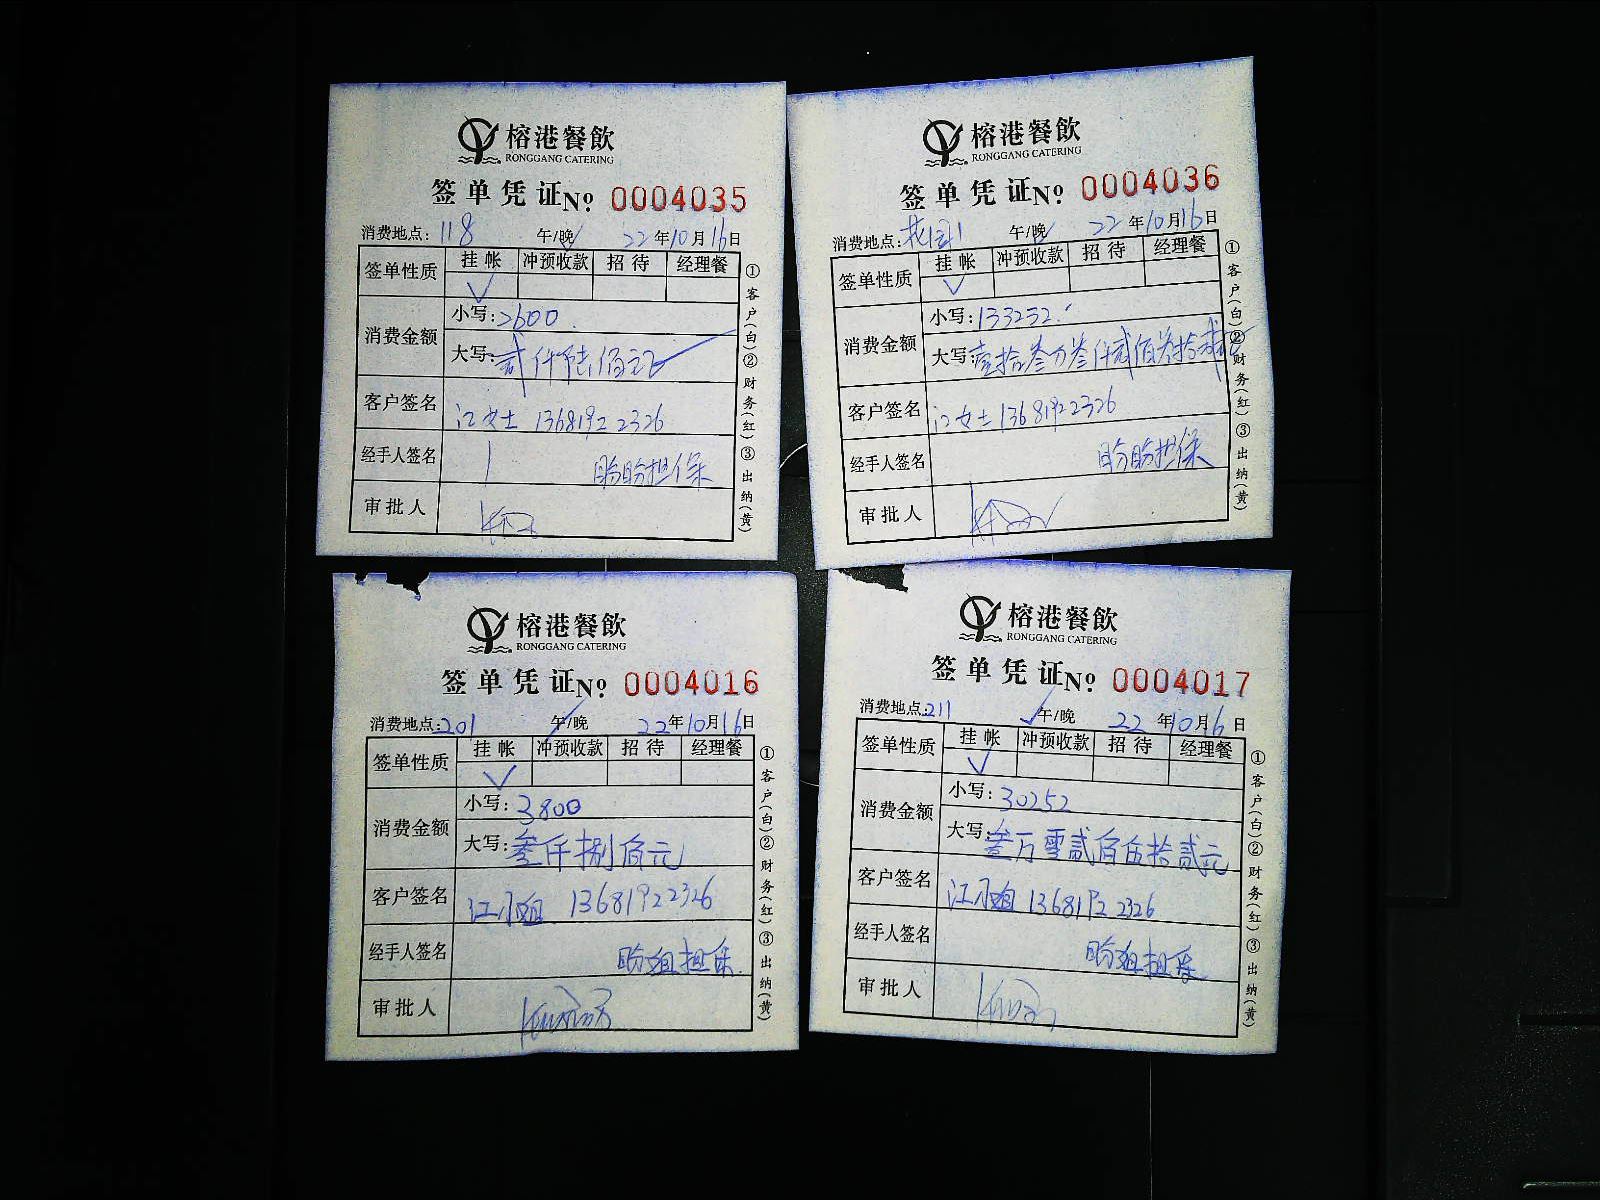 榕港餐飲
RONGGANG CATERING
签单凭证No 0004035
消费地点: 118 午/晚 22年10月16日
签单性质 挂帐 冲预收款 招待 经理餐
消费金额 小写: 2600
大写: 贰仟陆佰元正
客户签名 江女士 13681922326
经手人签名 盼盼担保
审批人
①客户(白)②财务(红)③出纳(黄)
榕港餐飲
RONGGANG CATERING
签单凭证No 0004036
消费地点: 花园1 午/晚 22年10月16日
签单性质 挂帐 冲预收款 招待 经理餐
消费金额 小写: 133232.
大写: 壹拾叁万叁仟贰佰叁拾贰元
客户签名 江女士 13681922326
经手人签名 盼盼担保
审批人
①客户(白)②财务(红)③出纳(黄)
榕港餐飲
RONGGANG CATERING
签单凭证No 0004016
消费地点: 201 午/晚 22年10月16日
签单性质 挂帐 冲预收款 招待 经理餐
消费金额 小写: 3800
大写: 叁仟捌佰元
客户签名 江小姐 13681922326
经手人签名 盼姐担保
审批人
①客户(白)②财务(红)③出纳(黄)
榕港餐飲
RONGGANG CATERING
签单凭证No 0004017
消费地点: 211 午/晚 22年10月16日
签单性质 挂帐 冲预收款 招待 经理餐
消费金额 小写: 30252
大写: 叁万零贰佰伍拾贰元
客户签名 江小姐 13681922326
经手人签名 盼姐担保
审批人
①客户(白)②财务(红)③出纳(黄)